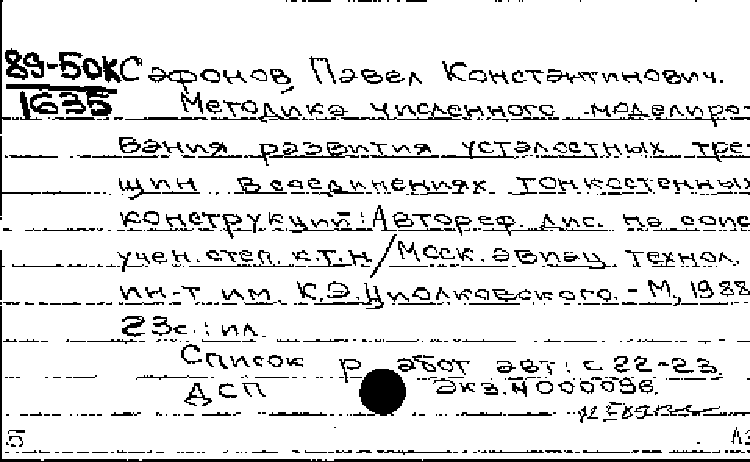 89-50К Сафонов, Павел Константинович.
1635 Методика численного моделиро-
вания развития усталостных тре-
щин в соединениях тонкостенных
конструкций: Автореф. дис. на соис
учен. степ. к.т.н / Моск. авиац. технол.
ин-т им. К.Э. Циолковского. - М, 1988
23с.: ил.
Список работ авт: с 22-23.
ДСП Экз. N 000096.